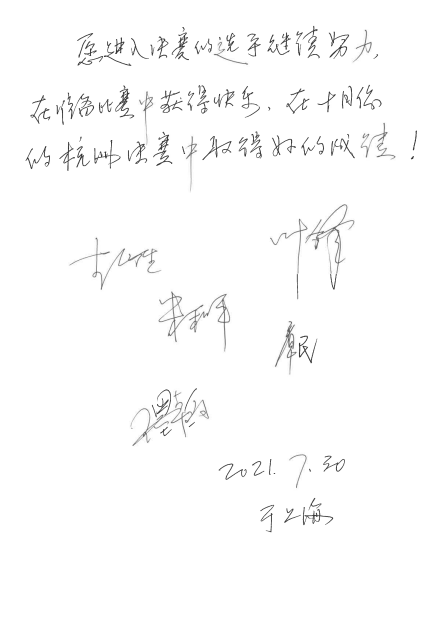 愿进入决赛的选手继续努力,
在准备比赛中获得快乐,在十月份
的杭州决赛中取得好的成绩!
叶锋
2021.7.30
于上海